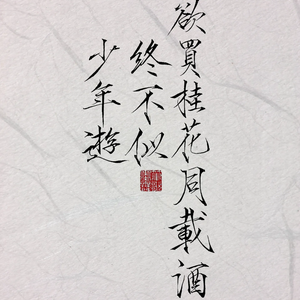 欲買桂花同載酒
終不似
少年遊